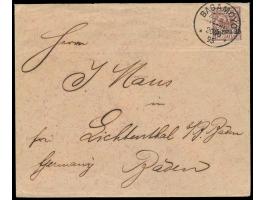 BAGAMOYO
Herrn
J. Naus
in
Lichtenthal b/ Baden
Germany
Baden